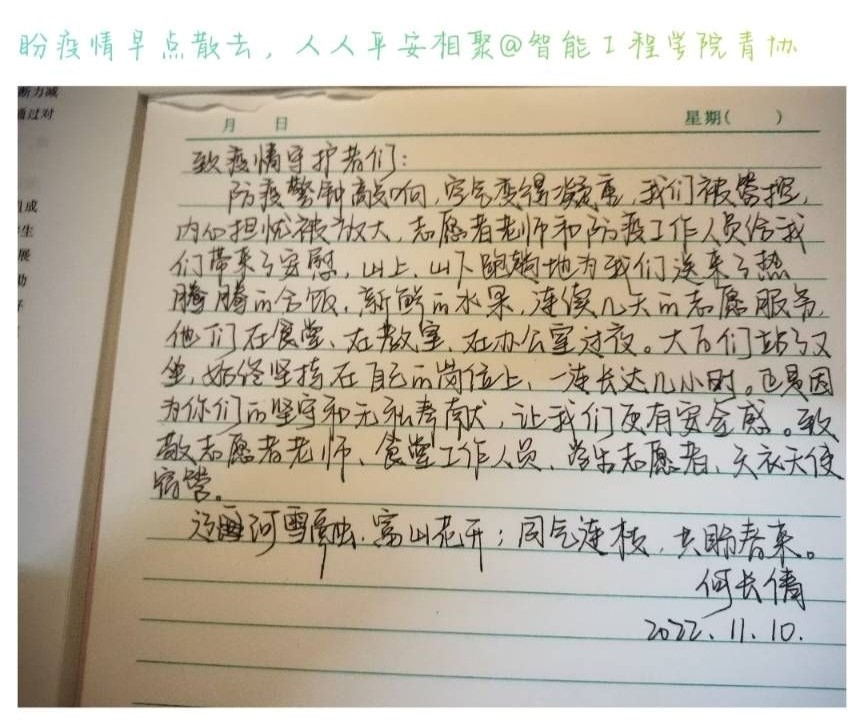 盼疫情早点散去，人人平安相聚@智能工程学院青协
断力减
通过对
组成
学生
展
助
月 日 星期( )
致疫情守护者们：
防疫警钟敲响，空气变得凝重，我们被管控，
内心担忧被放大，志愿者老师和防疫工作人员给我
们带来了安慰，山上，山下跑趟地为我们送来了热
腾腾的合饭，新鲜的水果，连续几天的志愿服务，
他们在食堂、在教室、在办公室过夜。大白们站了又
坐，始终坚持在自己的岗位上，一连长达几小时。正是因
为你们的坚守和无私奉献，让我们更有安全感。致
敬志愿者老师、食堂工作人员、学生志愿者、天衣天使
宿管。
辽河雪融，富山花开；同气连枝，共盼春来。
何长倩
2022.11.10.